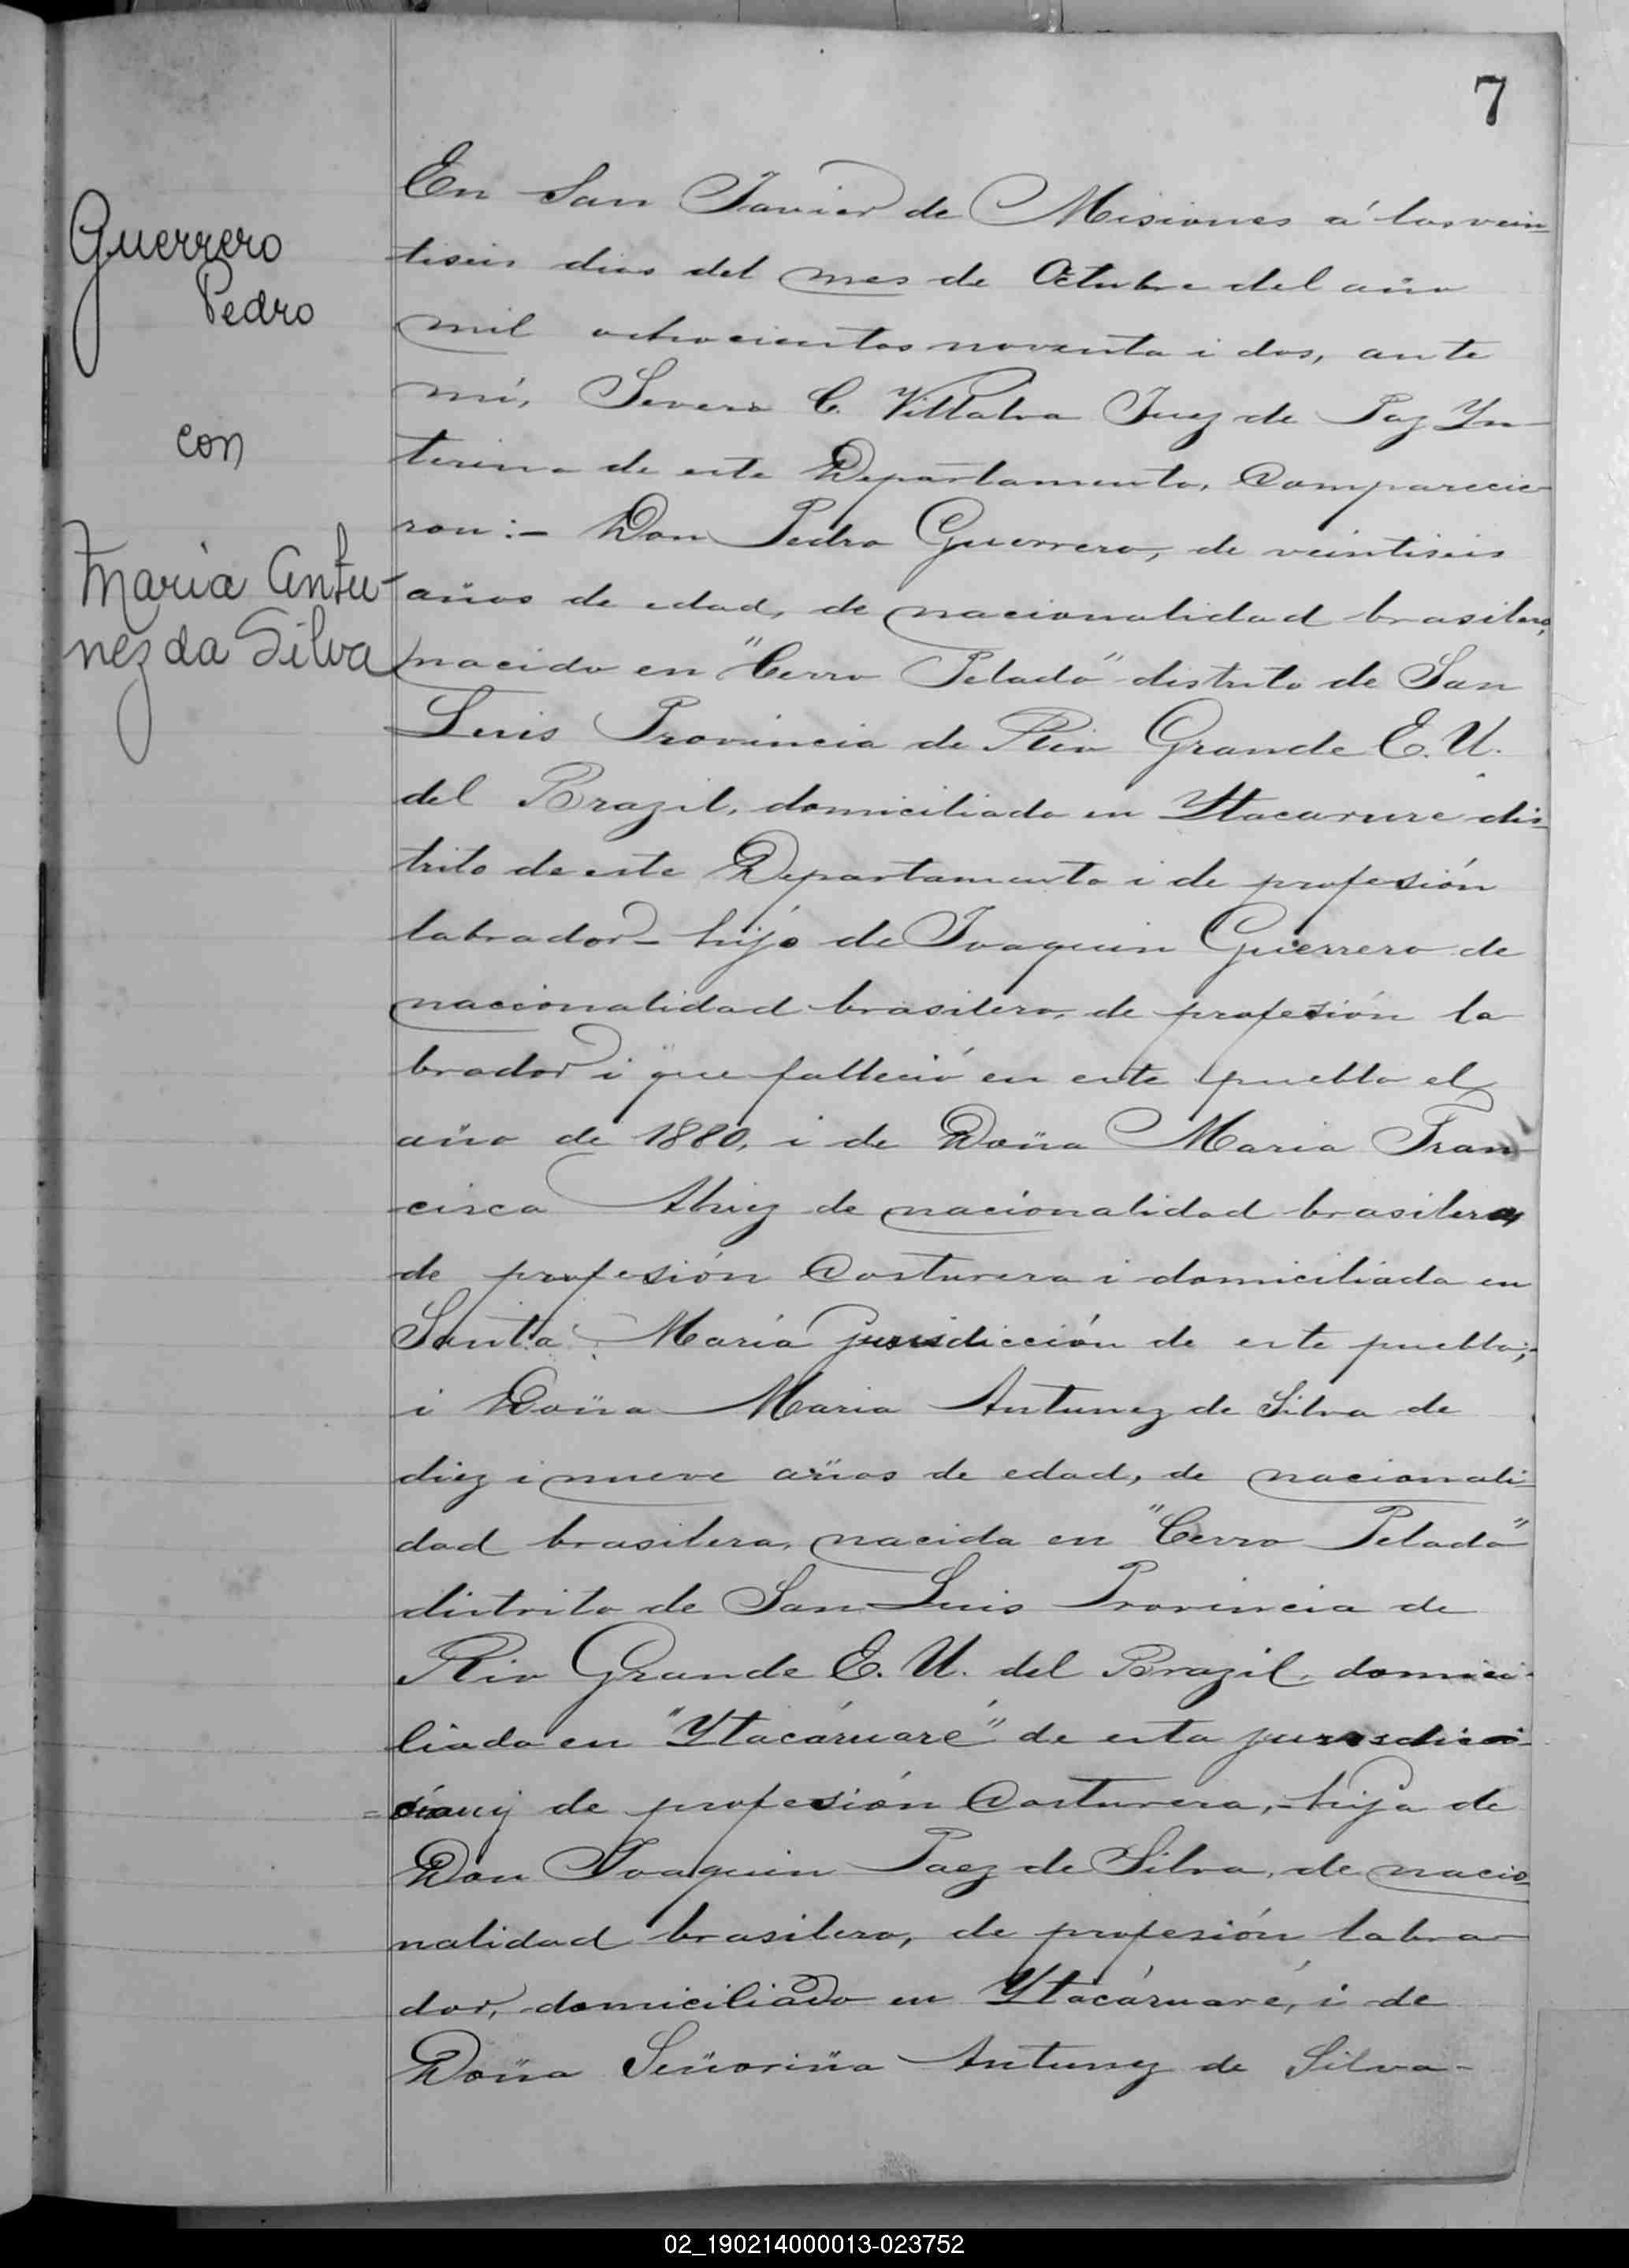 7
Guerrero
Pedro
con
Maria Antu-
nez da Silva
En San Javier de Misiones á los vein-
tiseis dias del mes de Octubre del año
mil ochocientos noventa i dos, ante
mí, Severo C. Villalva Juez de Paz Yn-
terino de este Departamento, Comparecie-
ron:- Don Pedro Guerrero, de veintiseis
años de edad, de nacionalidad brasilero,
nacido en "Cerro Pelado" distrito de San
Luis Provincia de Rio Grande E. U.
del Brazil, domiciliado en Ytacarure dis-
trito de este Departamento i de profesión
labrador- hijo de Joaquin Guerrero de
nacionalidad brasilero, de profesión la
brador i que falleció en este pueblo el
año de 1880, i de Doña Maria Fran-
cisca de nacionalidad brasilera
de profesión Costurera i domiciliada en
Santa María jurisdicción de este pueblo;-
i Doña Maria Antunez de Silva de
diez i nueve años de edad, de nacionali-
dad brasilera, nacida en "Cerro Pelado"
distrito de San Luis Provincia de
Rio Grande E. U. del Brazil, domici-
liada en "Ytacáruaré" de esta jurisdicci-
de profesión Costurera,- hija de
Don Joaquin Paez de Silva, de nacio-
nalidad brasilero, de profesión labra-
dor, domiciliado en Ytacáruaré, i de
Doña Señoriña Antunez de Silva-
02_190214000013-023752